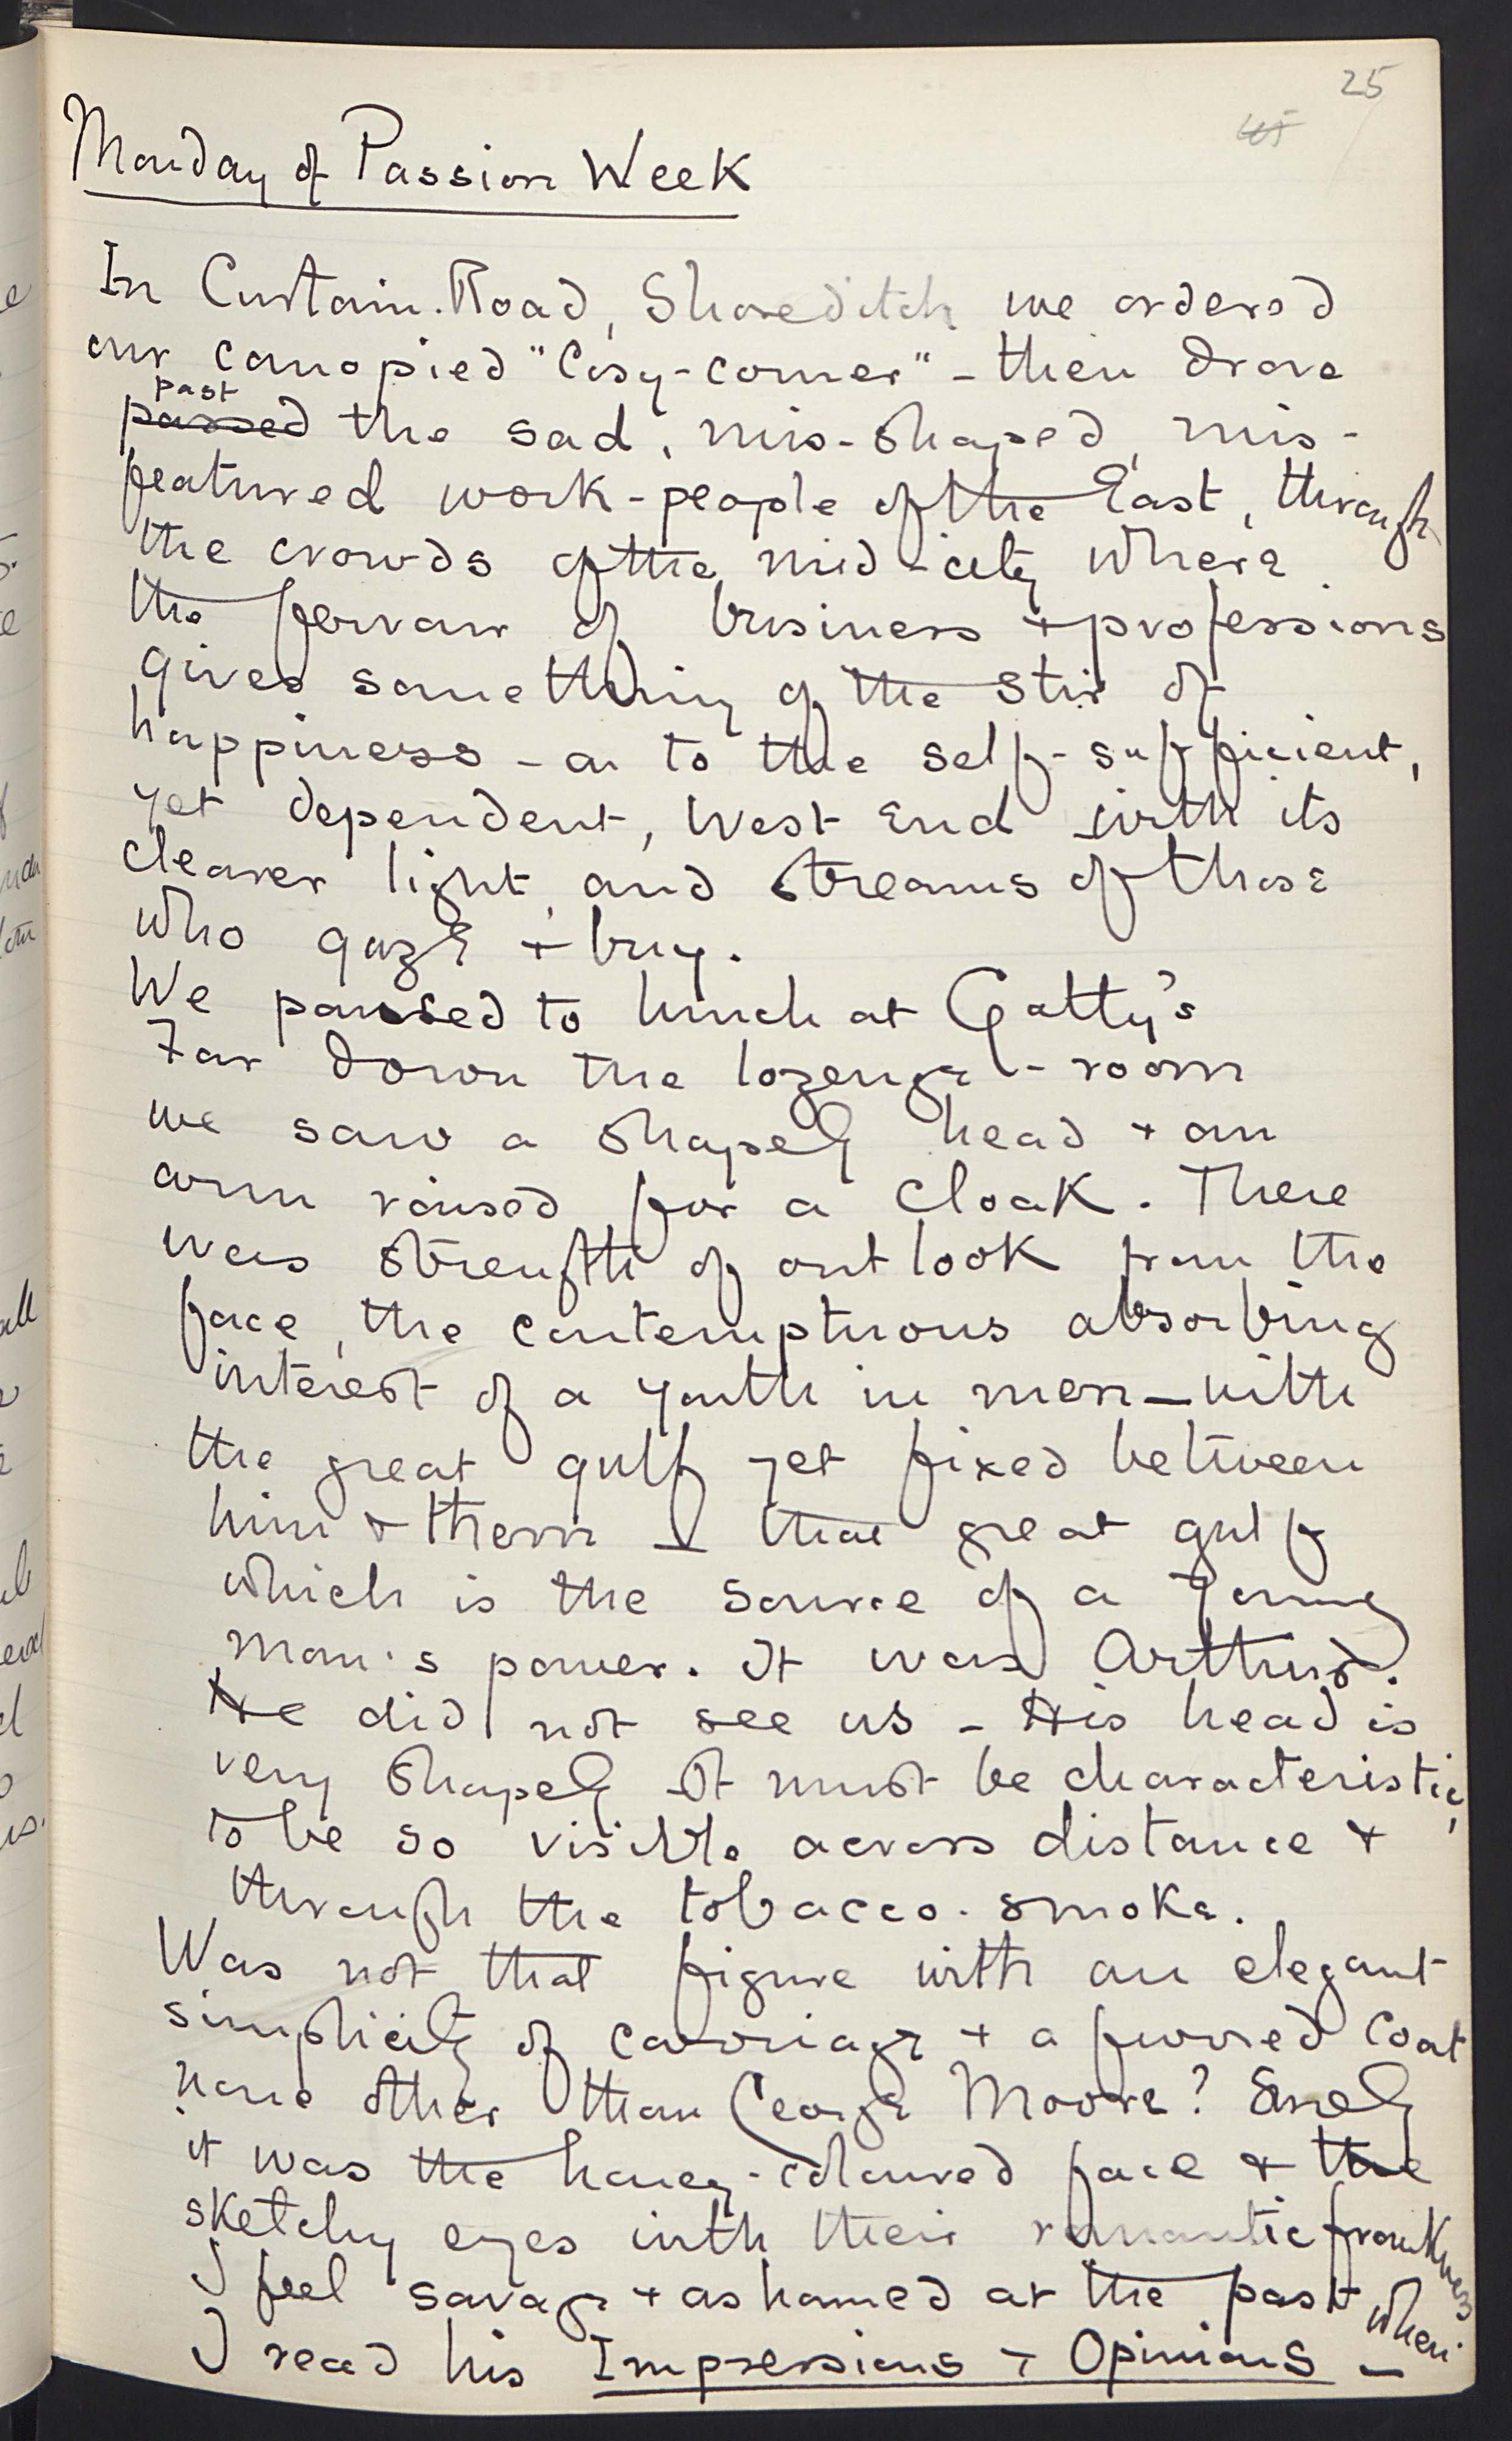 25
Monday of Passion Week
In Curtain. Road, Shoreditch we ordered
our canopied "Cosy-corner" - then drove
past
passed the sad, mis-shaped, mis-
featured work-people of the East, through
the crowds of the mid-city where
the fervour of business + professions
gives something of the stir of
happiness - on to the self-sufficient,
yet dependent, West End with its
clearer light, and streams of those
who gaze + buy.
We paused to lunch at Gatty's
Far down the lozenge-room
we saw a shapely head + an
arm raised for a cloak. There
was strength of outlook from the
face, the contemptuous absorbing
interest of a youth in men - with
the great gulf yet fixed between
him + them - that great gulf
which is the source of a young
man's power. It was Arthur.
He did not see us - His head is
very shapely - It must be characteristic,
to be so visible across distance +
through the tobacco-smoke.
Was not that figure with an elegant
simplicity of carriage + a furred coat
none other than George Moore? Surely
it was the honey-coloured face + the
sketchy eyes with their romantic frankness
I feel savage + ashamed at the past when
I read his Impressions + Opinions -